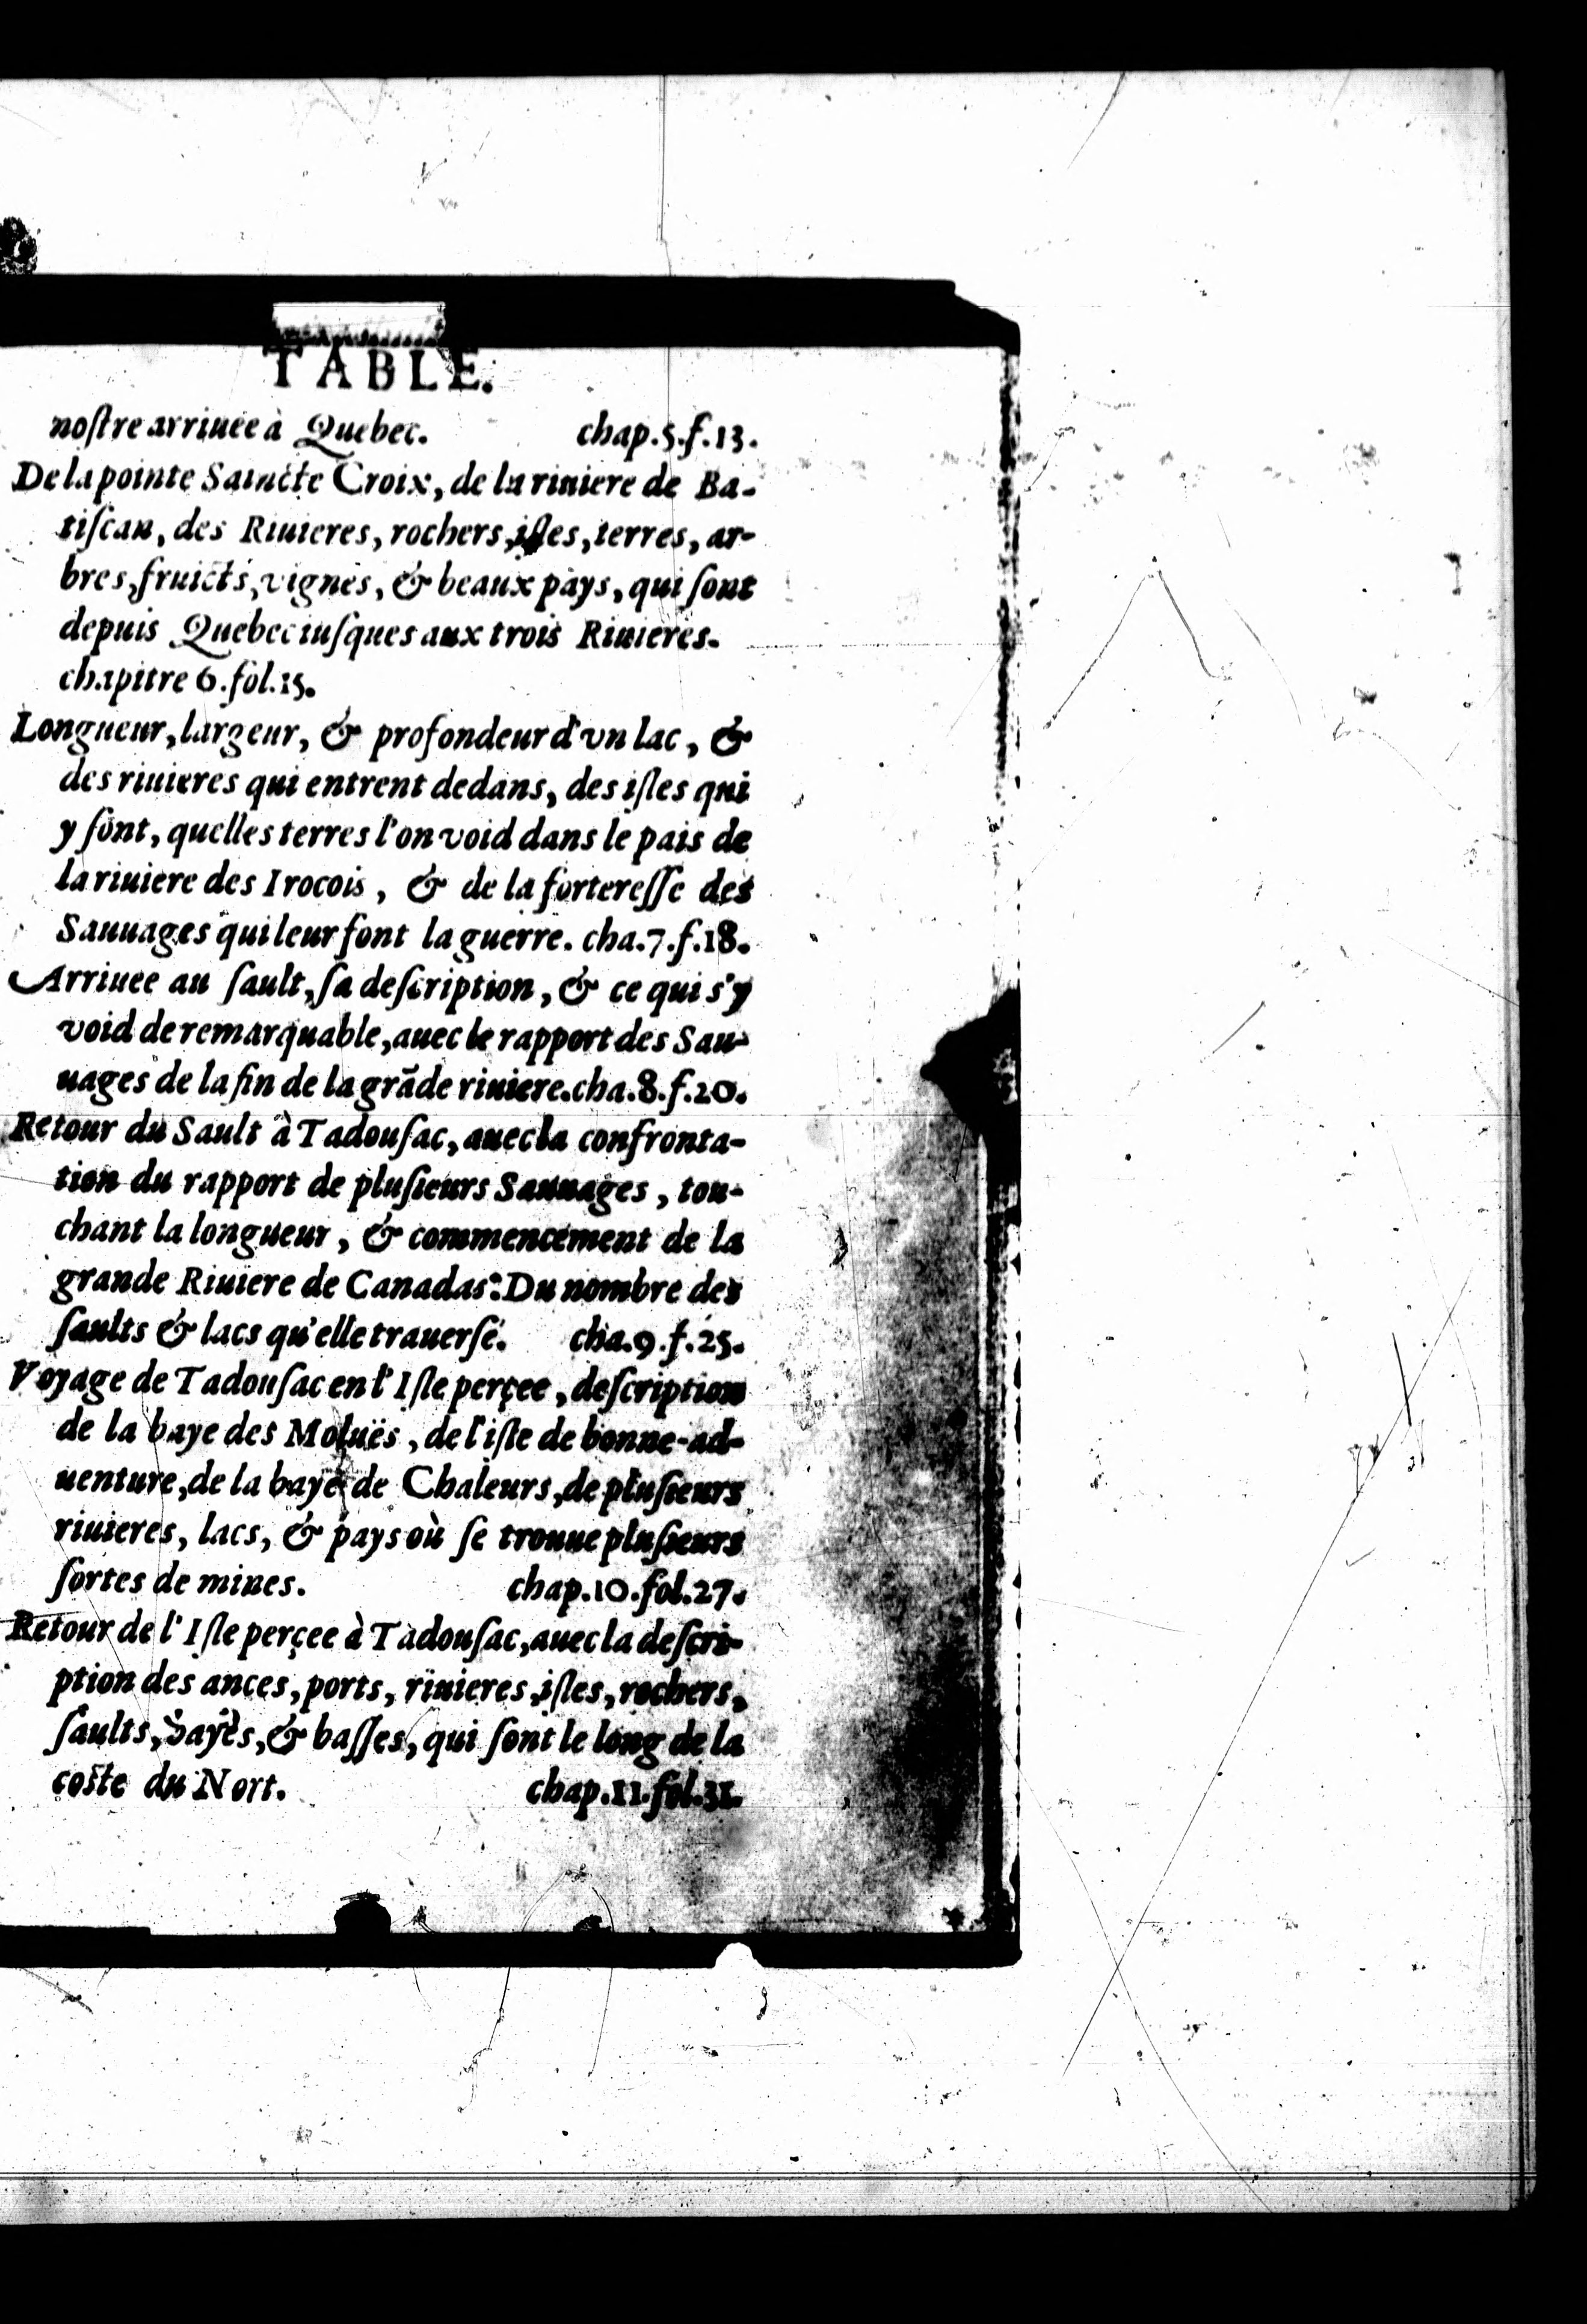 TABLE.
noſtre arriuee à Quebec. chap.5.f.13.
De la pointe Saincte Croix, de la riuiere de Ba-
tiſcan, des Riuieres, rochers, iſles, terres, ar-
bres, fruicts, vignes, & beaux pays, qui ſont
depuis Quebec iuſques aux trois Riuieres.
chapitre 6.fol.15.
Longueur, largeur, & profondeur d'vn lac, &
des riuieres qui entrent dedans, des iſles qui
y ſont, quelles terres l'on void dans le pais de
la riuiere des Irocois, & de la fortereſſe des
Sauuages qui leur font la guerre. cha.7.f.18.
Arriuee au ſault, ſa deſcription, & ce qui s'y
void de remarquable, auec le rapport des Sau-
uages de la fin de la grãde riuiere.cha.8.f.20.
Retour du Sault à Tadouſac, auec la confronta-
tion du rapport de pluſieurs Sauuages, tou-
chant la longueur, & commencement de la
grande Riuiere de Canadas: Du nombre des
ſaults & lacs qu'elle trauerſe. cha.9.f.25.
Voyage de Tadouſac en l'Iſle perçee, deſcription
de la baye des Moluës, de l'iſle de bonne-ad-
uenture, de la baye de Chaleurs, de pluſieurs
riuieres, lacs, & pays où ſe trouue pluſieurs
ſortes de mines. chap.10.fol.27.
Retour de l'Iſle perçee à Tadouſac, auec la deſcri-
ption des ances, ports, riuieres, iſles, rochers,
ſaults, bayes, & baſſes, qui ſont le long de la
coſte du Nort. chap.11.fol.31.